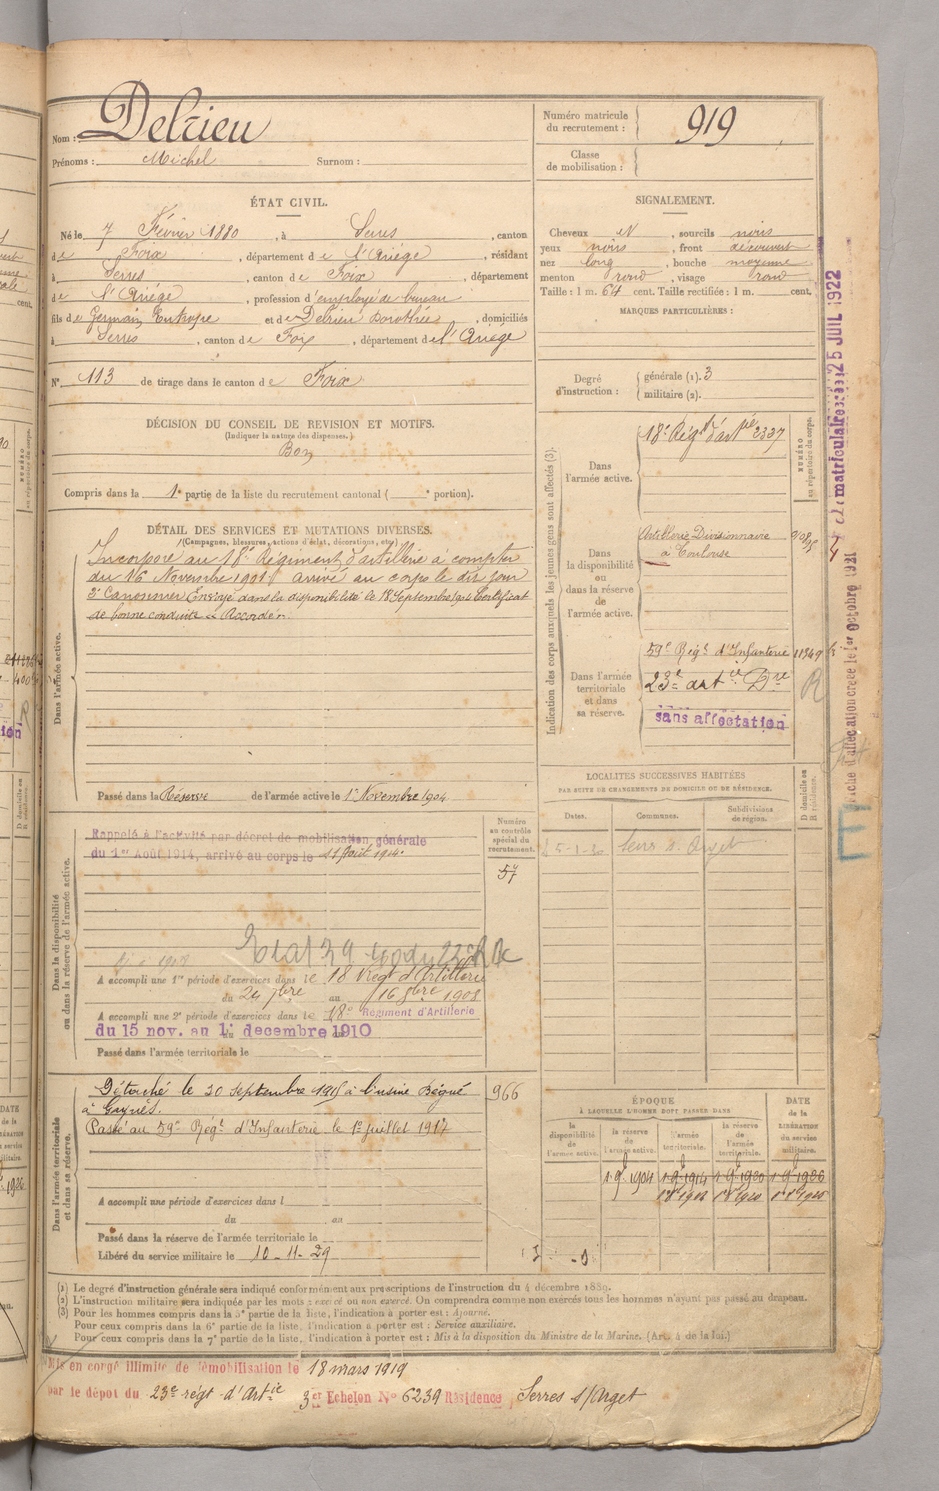 Nom : Delrieu
Prénoms : Michel Surnom :
Numéro matricule du recrutement : 919
Classe de mobilisation :
ÉTAT CIVIL.
Né le 7 Février 1880, à Serres, canton
de Foix, département de l'Ariège, résidant
à Serres, canton de Foix, département
de l'Ariège, profession d'employé de bureau
fils de Germain Eutrope et de Delrieu Dorothée, domiciliés
à Serres, canton de Foix, département de l'Ariège
N° 113 de tirage dans le canton de Foix
SIGNALEMENT.
Cheveux N, sourcils noirs
yeux noirs, front découvert
nez long, bouche moyenne
menton rond, visage rond
Taille : 1 m. 64 cent. Taille rectifiée : 1 m. cent.
MARQUES PARTICULIÈRES :
Degré d'instruction : générale (1). 3
militaire (2).
DÉCISION DU CONSEIL DE REVISION ET MOTIFS.
(Indiquer la nature des dispenses.)
Bon
Compris dans la 1e partie de la liste du recrutement cantonal ( e portion).
DÉTAIL DES SERVICES ET MUTATIONS DIVERSES.
(Campagnes, blessures, actions d'éclat, décorations, etc.)
Dans l'armée active.
Incorporé au 18e Régiment d'artillerie à compter
du 16 Novembre 1901 arrivé au corps le dit jour
2e Canonnier Envoyé dans la disponibilité le 18 Septembre 1904 Certificat
de bonne conduite « Accordé ».
Passé dans la Réserve de l'armée active le 1er Novembre 1904
Indication des corps auxquels les jeunes gens sont affectés (3).
NUMÉRO au répertoire du corps.
Dans l'armée active.
18e Régt d'artie 2337
Dans la disponibilité ou dans la réserve de l'armée active.
Artillerie Divisionnaire
à Toulouse
Dans l'armée territoriale et dans sa réserve.
59e Régt d'Infanterie 11349
23e artie
R
sans affectation
LOCALITÉS SUCCESSIVES HABITÉES
PAR SUITE DE CHANGEMENTS DE DOMICILE OU DE RÉSIDENCE.
Dates. Communes. Subdivisions de région. D domicile ou R résidence.
Serres s. Arget
Dans la disponibilité ou dans la réserve de l'armée active.
Numéro au contrôle spécial du recrutement.
57
Rappelé à l'activité par décret de mobilisation générale
du 1er Août 1914, arrivé au corps le 11 Août 1914.
A accompli une 1re période d'exercices dans le 18 Régt d'Artillerie
du 24 7bre au 16 8bre 1908
A accompli une 2e période d'exercices dans le 18e Régiment d'Artillerie
du 15 nov. au 1er decembre 1910
Passé dans l'armée territoriale le
Dans l'armée territoriale et dans sa réserve.
966
Détaché le 30 septembre 1915 à l'usine Bégué
à
Passé au 59e Régt d'Infanterie le 1er Juillet 1917
A accompli une période d'exercices dans l
du au
Passé dans la réserve de l'armée territoriale le
Libéré du service militaire le 10-11-29
ÉPOQUE
À LAQUELLE L'HOMME DOIT PASSER DANS
DATE de la LIBÉRATION du service militaire.
la disponibilité de l'armée active. la réserve de l'armée active. l'armée territoriale. la réserve de l'armée territoriale.
1 9bre 1904 1 9bre 1914 1 9bre 1920 1 9bre 1926
(1) Le degré d'instruction générale sera indiqué conformément aux prescriptions de l'instruction du 4 décembre 1889.
(2) L'instruction militaire sera indiquée par les mots : exercé ou non exercé. On comprendra comme non exercés tous les hommes n'ayant pas passé au drapeau.
(3) Pour les hommes compris dans la 5e partie de la liste, l'indication à porter est : Ajourné.
Pour ceux compris dans la 6e partie de la liste, l'indication à porter est : Service auxiliaire.
Pour ceux compris dans la 7e partie de la liste, l'indication à porter est : Mis à la disposition du Ministre de la Marine. (Art. 4 de la loi.)
Mis en congé illimité de démobilisation le 18 mars 1919
par le dépôt du 23e régt d'Artie 3er Echelon N° 6239 Résidence Serres s/Arget
matriculaire 25 JUIL 1922
Fiche d'affectation créée le 1er octobre 1921
E